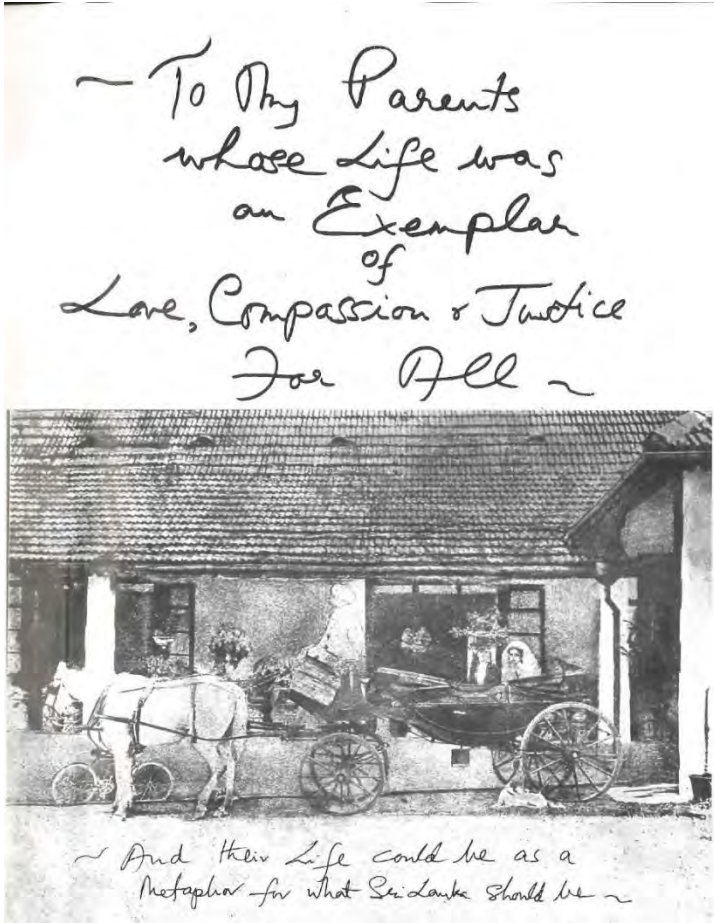 ~ To My Parents
whose Life was
an Exemplar
of
Love, Compassion & Justice
For All ~
~ And their Life could be as a
Metaphor for what Sri Lanka should be ~